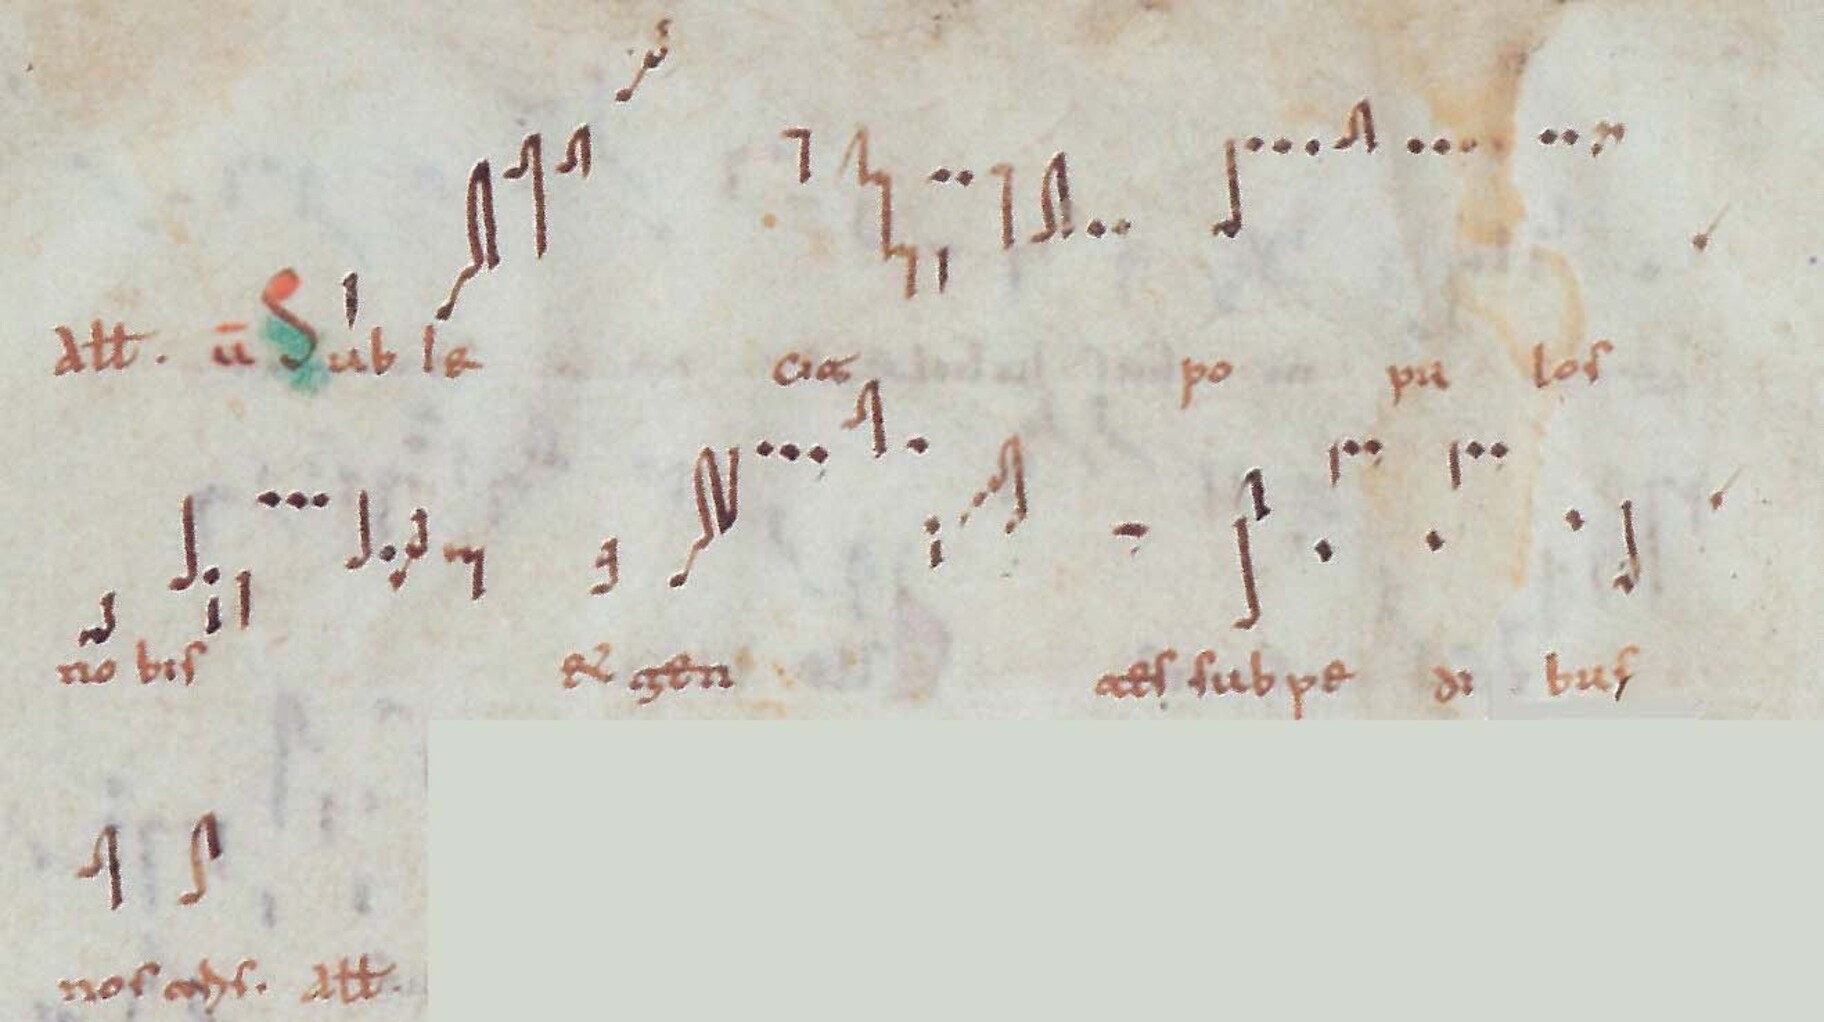 All. ii Sub le cit po pu los
no bis et gen tes sub pe di bus
nos tris. All.